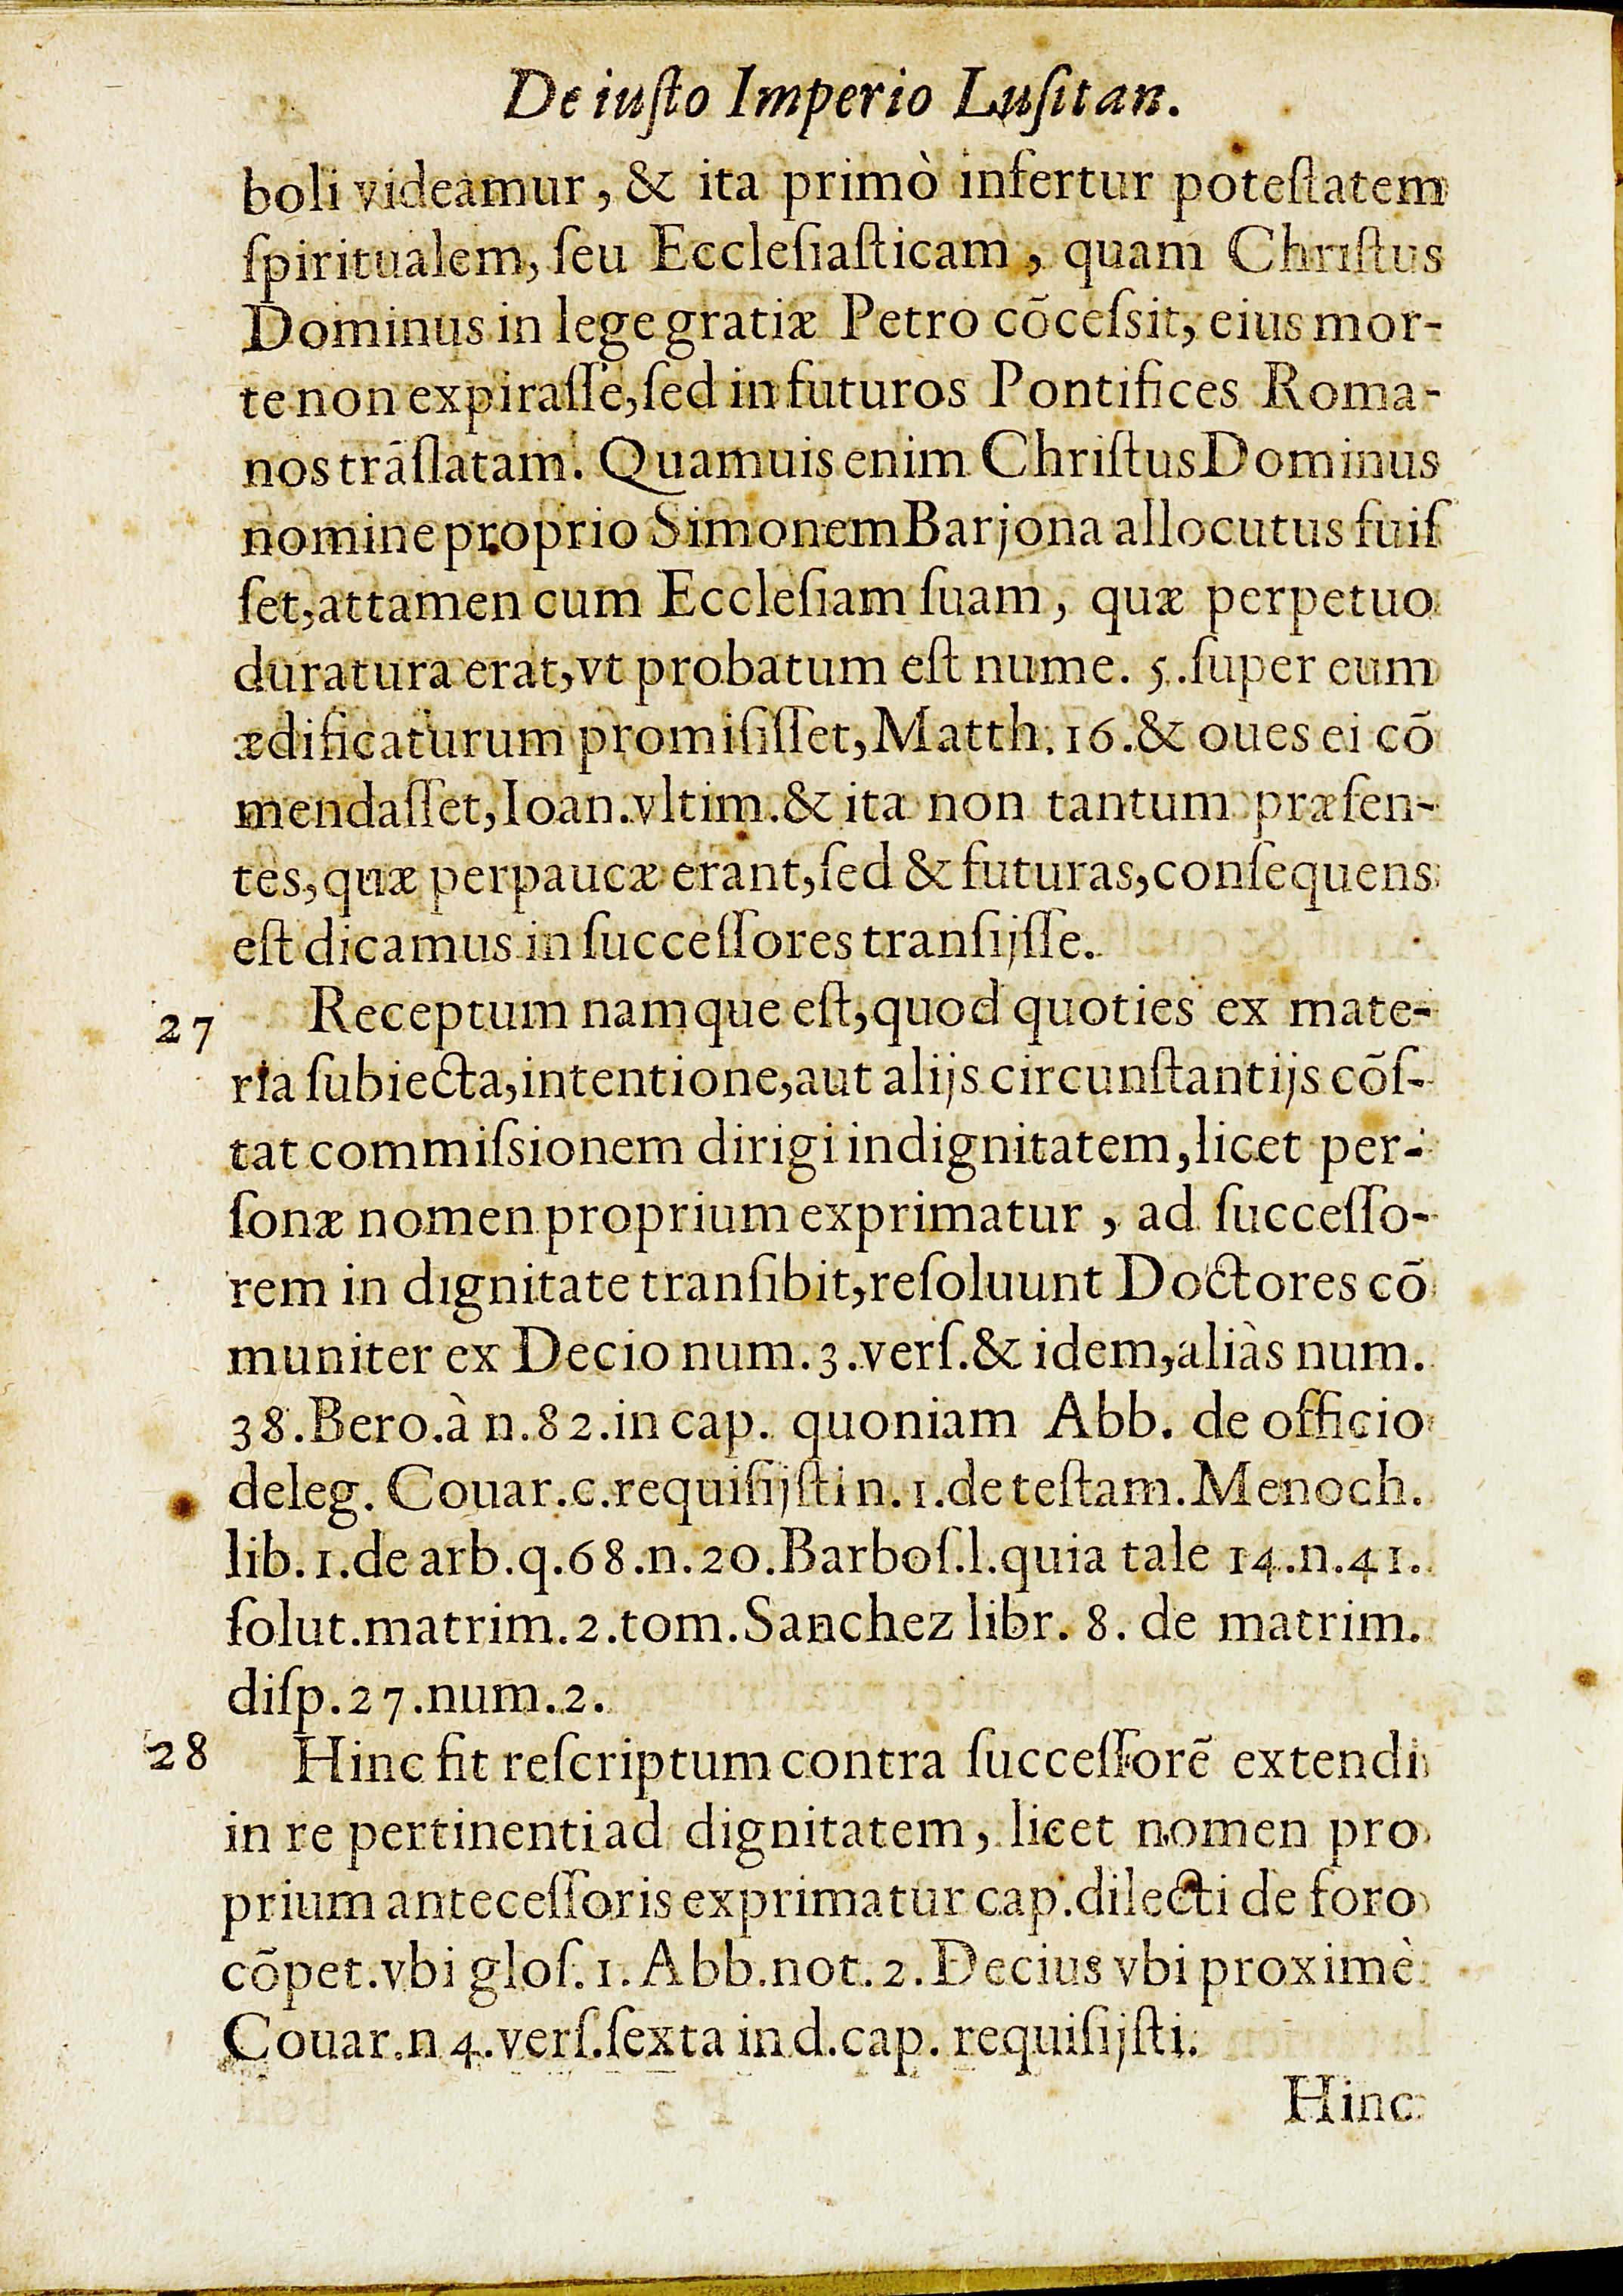 De iuſto Imperio Luſitan.
boli videamur, & ita primò infertur poteſtatem
ſpiritualem, ſeu Eccleſiaſticam, quam Chriſtus
Dominus in lege gratiæ Petro cõceſsit, eius mor-
te non expiraſſe, ſed in futuros Pontifices Roma-
nos trãſlatam. Quamuis enim Chriſtus Dominus
nomine proprio Simonem Barjona allocutus fuiſ
ſet, attamen cum Eccleſiam ſuam, quæ perpetuo
duratura erat, vt probatum eſt nume. 5. ſuper eum
ædificaturum promiſiſſet, Matth. 16. & oues ei cõ
mendaſſet, Ioan. vltim. & ita non tantum præſen-
tes, quæ perpaucæ erant, ſed & futuras, conſequens
eſt dicamus in ſucceſſores tranſijſſe.
27 Receptum namque eſt, quod quoties ex mate-
ria ſubiecta, intentione, aut alijs circunſtantijs cõſ-
tat commiſsionem dirigi indignitatem, licet per-
ſonæ nomen proprium exprimatur, ad ſucceſſo-
rem in dignitate tranſibit, reſoluunt Doctores cõ
muniter ex Decio num. 3. verſ. & idem, aliàs num.
38. Bero. à n. 82. in cap. quoniam Abb. de officio
deleg. Couar. c. requiſijſti n. 1. de teſtam. Menoch.
lib. 1. de arb. q. 68. n. 20. Barboſ. l. quia tale 14. n. 41.
ſolut. matrim. 2. tom. Sanchez libr. 8. de matrim.
diſp. 27. num. 2.
28 Hinc fit reſcriptum contra ſucceſſorẽ extendi
in re pertinenti ad dignitatem, licet nomen pro
prium anteceſſoris exprimatur cap. dilecti de foro
cõpet. vbi gloſ. 1. Abb. not. 2. Decius vbi proximè
Couar. n 4. verſ. ſexta in d. cap. requiſijſti.
Hinc